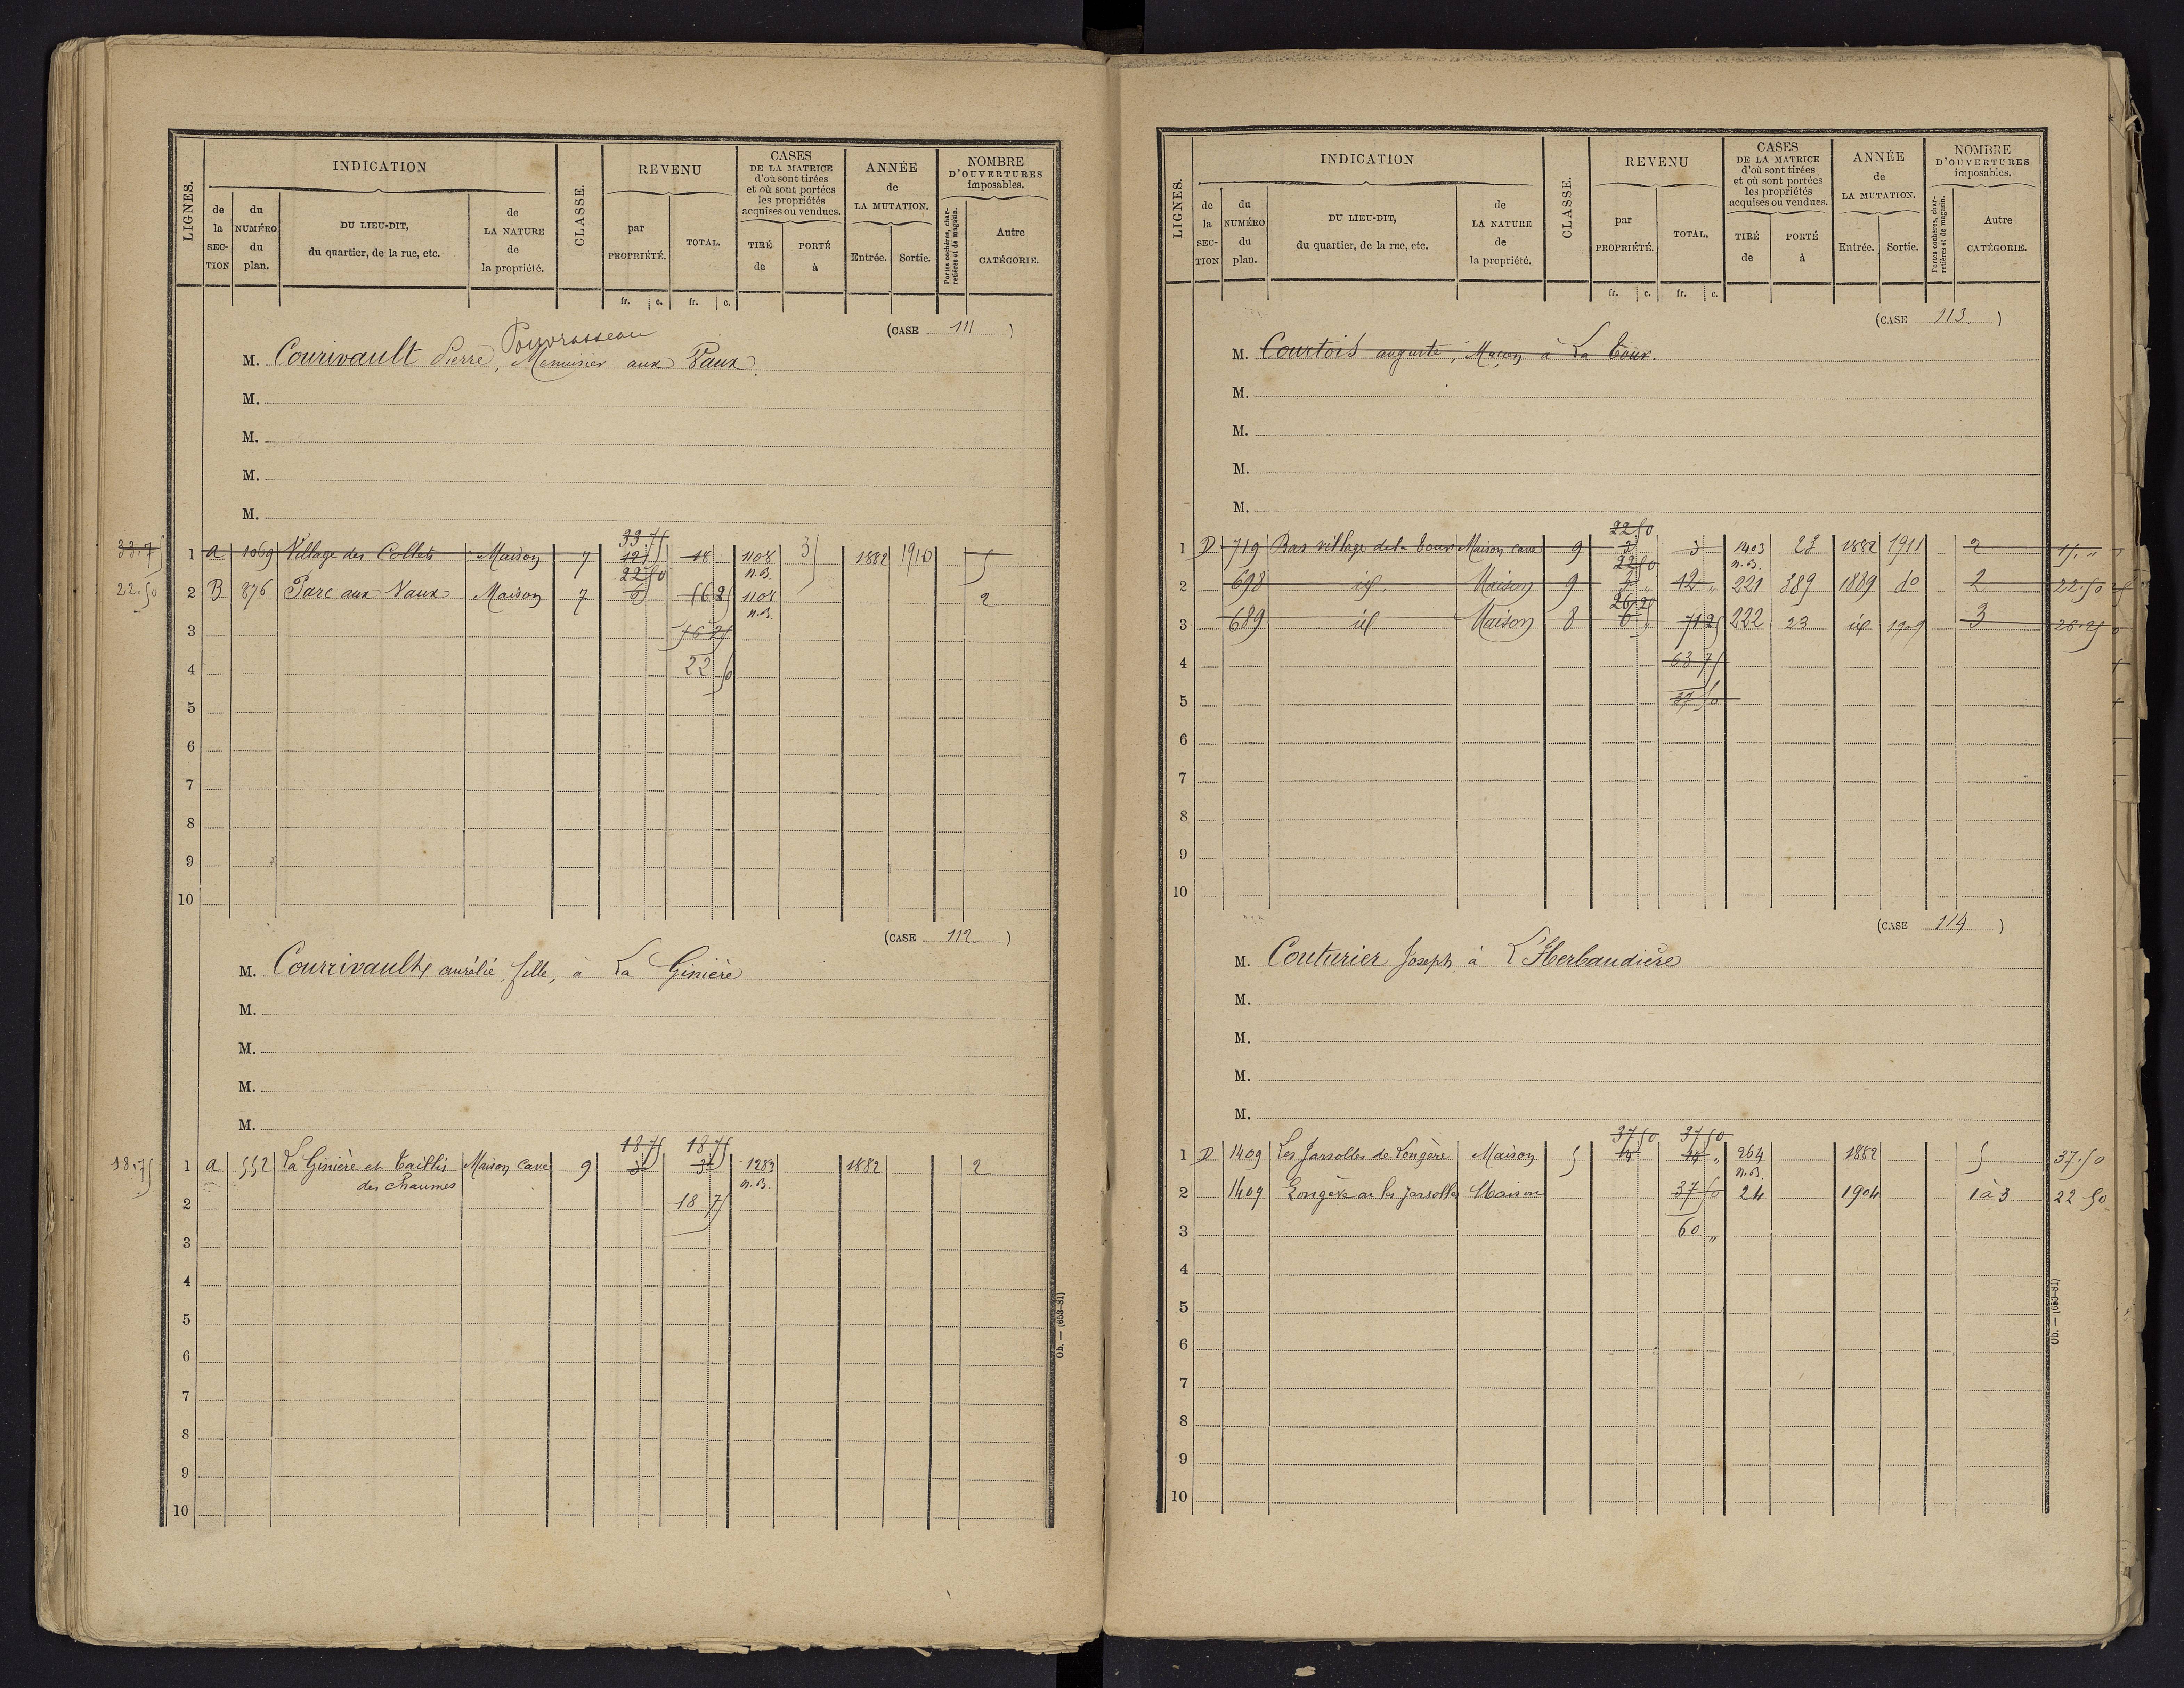 LIGNES.
INDICATION
CLASSE.
REVENU
CASES
DE LA MATRICE
d'où sont tirées
et où sont portées
les propriétés
acquises ou vendues.
ANNÉE
de
LA MUTATION.
NOMBRE
D'OUVERTURES
imposables.
de
la
SEC-
TION
du
NUMÉRO
du
plan.
DU LIEU-DIT,
du quartier, de la rue, etc.
de
LA NATURE
de
la propriété.
par
PROPRIÉTÉ.
TOTAL.
TIRÉ
de
PORTÉ
à
Entrée.
Sortie.
Portes cochères, char-
retières et de magasin.
Autre
CATÉGORIE.
fr. c. fr. c.
(CASE 111)
Pouvrasseau
M. Courivault Pierre, Menuisier aux Vaux
M.
M.
M.
M.
33 75
33.75 1 a 1069 Village des Collets Maison 7 18 1108 3 1882 1910 5
22 50 n.B.
22.50 2 B 876 Parc aux Vaux Maison 7 6 56 25 1108 2
n.B.
3 56 25
4 22 50
5
6
7
8
9
10
(CASE 112)
M. Courrivault aurélie, fille, à La Ginière
M.
M.
M.
M.
18 75 18 75
18.75 1 a 552 La Ginière et Taillis Maison cave 9 3 3 1283 1882 2
des Chaumes n.B.
2 18 75
3
4
5
6
7
8
9
10
Ob. — (653-81)
LIGNES.
INDICATION
CLASSE.
REVENU
CASES
DE LA MATRICE
d'où sont tirées
et où sont portées
les propriétés
acquises ou vendues.
ANNÉE
de
LA MUTATION.
NOMBRE
D'OUVERTURES
imposables.
de
la
SEC-
TION
du
NUMÉRO
du
plan.
DU LIEU-DIT,
du quartier, de la rue, etc.
de
LA NATURE
de
la propriété.
par
PROPRIÉTÉ.
TOTAL.
TIRÉ
de
PORTÉ
à
Entrée.
Sortie.
Portes cochères, char-
retières et de magasin.
Autre
CATÉGORIE.
fr. c. fr. c.
(CASE 113.)
M. Courtois auguste, Maçon à La Cour.
M.
M.
M.
M.
22 50
1 D 719 Bas village de la Cour Maison cave 9 3 3 1403 23 1882 1911 2 15. "
22 50 n.B.
2 698 id. Maison 9 12 " 221 389 1889 do 2 22.50
26 25
3 689 id Maison 8 6 " 71 25 222 23 id 1909 3 26.25
4 63 75
5 37 50
6
7
8
9
10
(CASE 114)
M. Couturier Joseph à L'Herbaudière
M.
M.
M.
M.
37 50 37 50
1 D 1409 Les Jarsolles de Longère Maison 5 264 1882 5 37.50
n.B.
2 1409 Longère ou les Jarsolles Maison 37 50 24 1904 1 à 3 22 50
3 60 "
4
5
6
7
8
9
10
Ob. — (653-81)